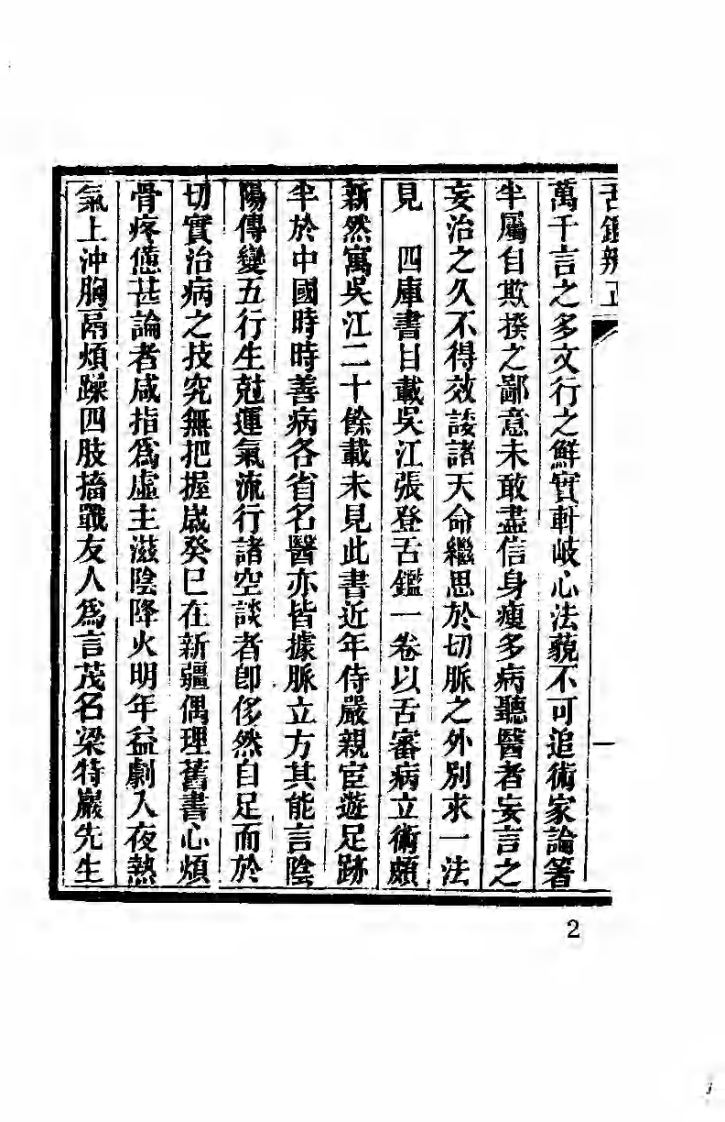 舌鑑辨正
一
萬千言之多文行之鮮實軒岐心法藐不可追術家論著
半屬自欺揆之鄙意未敢盡信身瘦多病聽醫者妄言之
妄治之久不得效諉諸天命繼思於切脈之外別求一法
見　四庫書目載吳江張登舌鑑一卷以舌審病立術頗
新然寓吳江二十餘載未見此書近年侍嚴親宦遊足跡
半於中國時時善病各省名醫亦皆據脈立方其能言陰
陽傳變五行生尅運氣流行諸空談者卽侈然自足而於
切實治病之技究無把握歲癸巳在新疆偶理舊書心煩
骨疼憊甚論者咸指爲虛主滋陰降火明年益劇入夜熱
氣上沖胸鬲煩躁四肢搐戰友人爲言茂名梁特巖先生
2